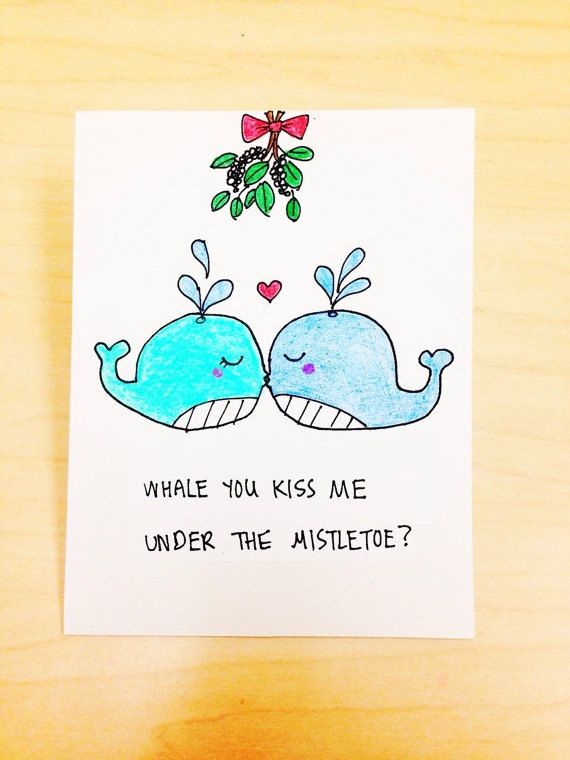 WHALE YOU KISS ME
UNDER THE MISTLETOE?